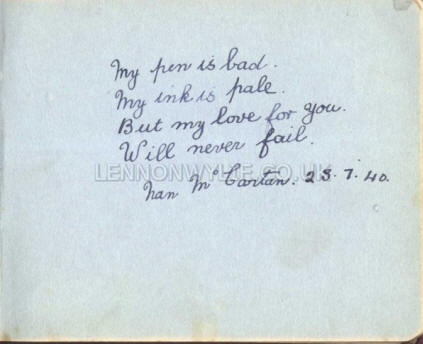 My pen is bad.
My ink is pale.
But my love for you.
Will never fail.
LENNONWYLIE.CO.UK
Nan Mc Cartan. 23.7.40.